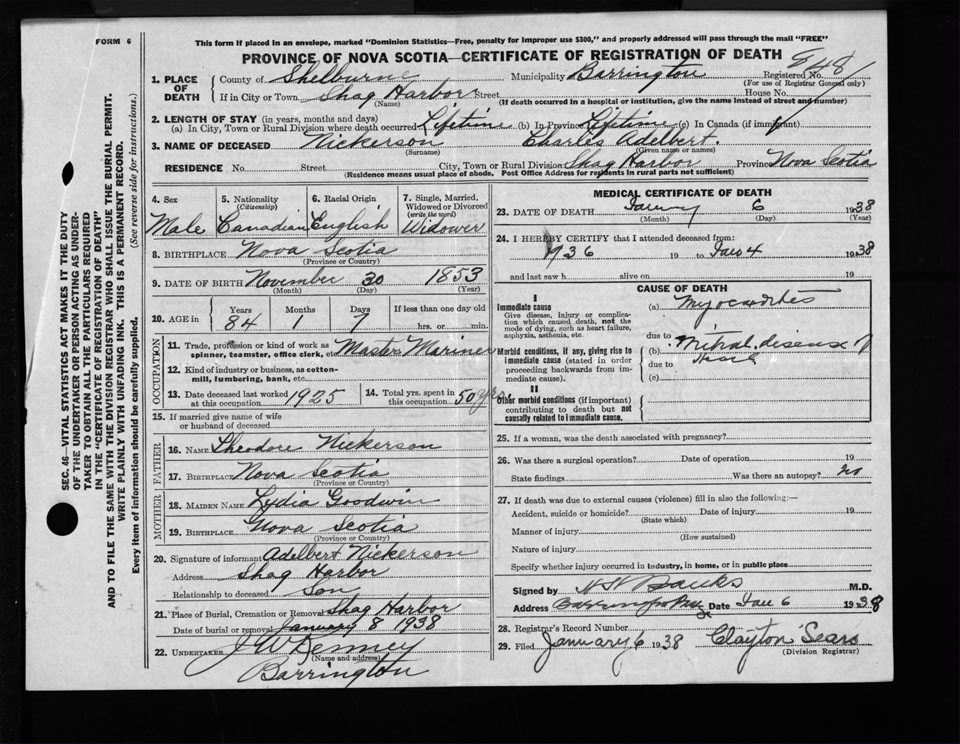 FORM 6
This form if placed in an envelope, marked "Dominion Statistics—Free, penalty for improper use $300," and properly addressed will pass through the mail "FREE"
PROVINCE OF NOVA SCOTIA—CERTIFICATE OF REGISTRATION OF DEATH
1. PLACE OF DEATH County of Shelburne Municipality Barrington Registered No. 548
(For use of Registrar General only)
If in City or Town Shag Harbor Street House No.
(Name) (If death occurred in a hospital or institution, give the name instead of street and number)
2. LENGTH OF STAY (in years, months and days)
(a) In City, Town or Rural Division where death occurred Lifetime (b) In Province Lifetime (c) In Canada (if immigrant)
3. NAME OF DECEASED Nickerson Charles Adelbert.
(Surname) (Given name or names)
RESIDENCE No. Street City, Town or Rural Division Shag Harbor Province Nova Scotia
(Residence means usual place of abode. Post Office Address for residents in rural parts not sufficient)
4. Sex Male
5. Nationality (Citizenship) Canadian
6. Racial Origin English
7. Single, Married, Widowed or Divorced (write the word) Widower
8. BIRTHPLACE Nova Scotia
(Province or Country)
9. DATE OF BIRTH November 30 1853
(Month) (Day) (Year)
10. AGE in Years 84 Months 1 Days 7 If less than one day old hrs. or min.
OCCUPATION
11. Trade, profession or kind of work as spinner, teamster, office clerk, etc. Master Mariner
12. Kind of industry or business, as cotton-mill, lumbering, bank, etc.
13. Date deceased last worked at this occupation 1925
14. Total yrs. spent in this occupation 50 yrs
15. If married give name of wife or husband of deceased
FATHER
16. NAME Theodore Nickerson
17. BIRTHPLACE Nova Scotia
(Province or Country)
MOTHER
18. MAIDEN NAME Lydia Goodwin
19. BIRTHPLACE Nova Scotia
(Province or Country)
20. Signature of informant Adelbert Nickerson
Address Shag Harbor
Relationship to deceased Son
21. Place of Burial, Cremation or Removal Shag Harbor
Date of burial or removal January 8 1938
22. UNDERTAKER J W Denney
(Name and address)
Barrington
MEDICAL CERTIFICATE OF DEATH
23. DATE OF DEATH January 6 1938
(Month) (Day) (Year)
24. I HEREBY CERTIFY that I attended deceased from:
1936 19 to Jan 4 1938
and last saw h alive on 19
CAUSE OF DEATH
I
Immediate cause
Give disease, injury or complication which caused death, not the mode of dying, such as heart failure, asphyxia, asthenia, etc.
(a) Myocarditis
due to
Morbid conditions, if any, giving rise to immediate cause (stated in order proceeding backwards from immediate cause).
(b) Mitral disease of heart
due to
(c)
II
Other morbid conditions (if important) contributing to death but not causally related to immediate cause.
25. If a woman, was the death associated with pregnancy?
26. Was there a surgical operation? Date of operation 19
State findings Was there an autopsy? no
27. If death was due to external causes (violence) fill in also the following:—
Accident, suicide or homicide? Date of injury 19
(State which)
Manner of injury
(How sustained)
Nature of injury
Specify whether injury occurred in industry, in home, or in public place
Signed by Banks M.D.
Address Date Jan 6 1938
28. Registrar's Record Number
29. Filed January 6 1938 Clayton Sears
(Division Registrar)
SEC. 46—VITAL STATISTICS ACT MAKES IT THE DUTY
OF THE UNDERTAKER OR PERSON ACTING AS UNDERTAKER
TO OBTAIN ALL THE PARTICULARS REQUIRED
IN THE "CERTIFICATE OF REGISTRATION OF DEATH"
AND TO FILE THE SAME WITH THE DIVISION REGISTRAR WHO SHALL ISSUE THE BURIAL PERMIT.
WRITE PLAINLY WITH UNFADING INK. THIS IS A PERMANENT RECORD.
Every item of information should be carefully supplied. (See reverse side for instructions.)